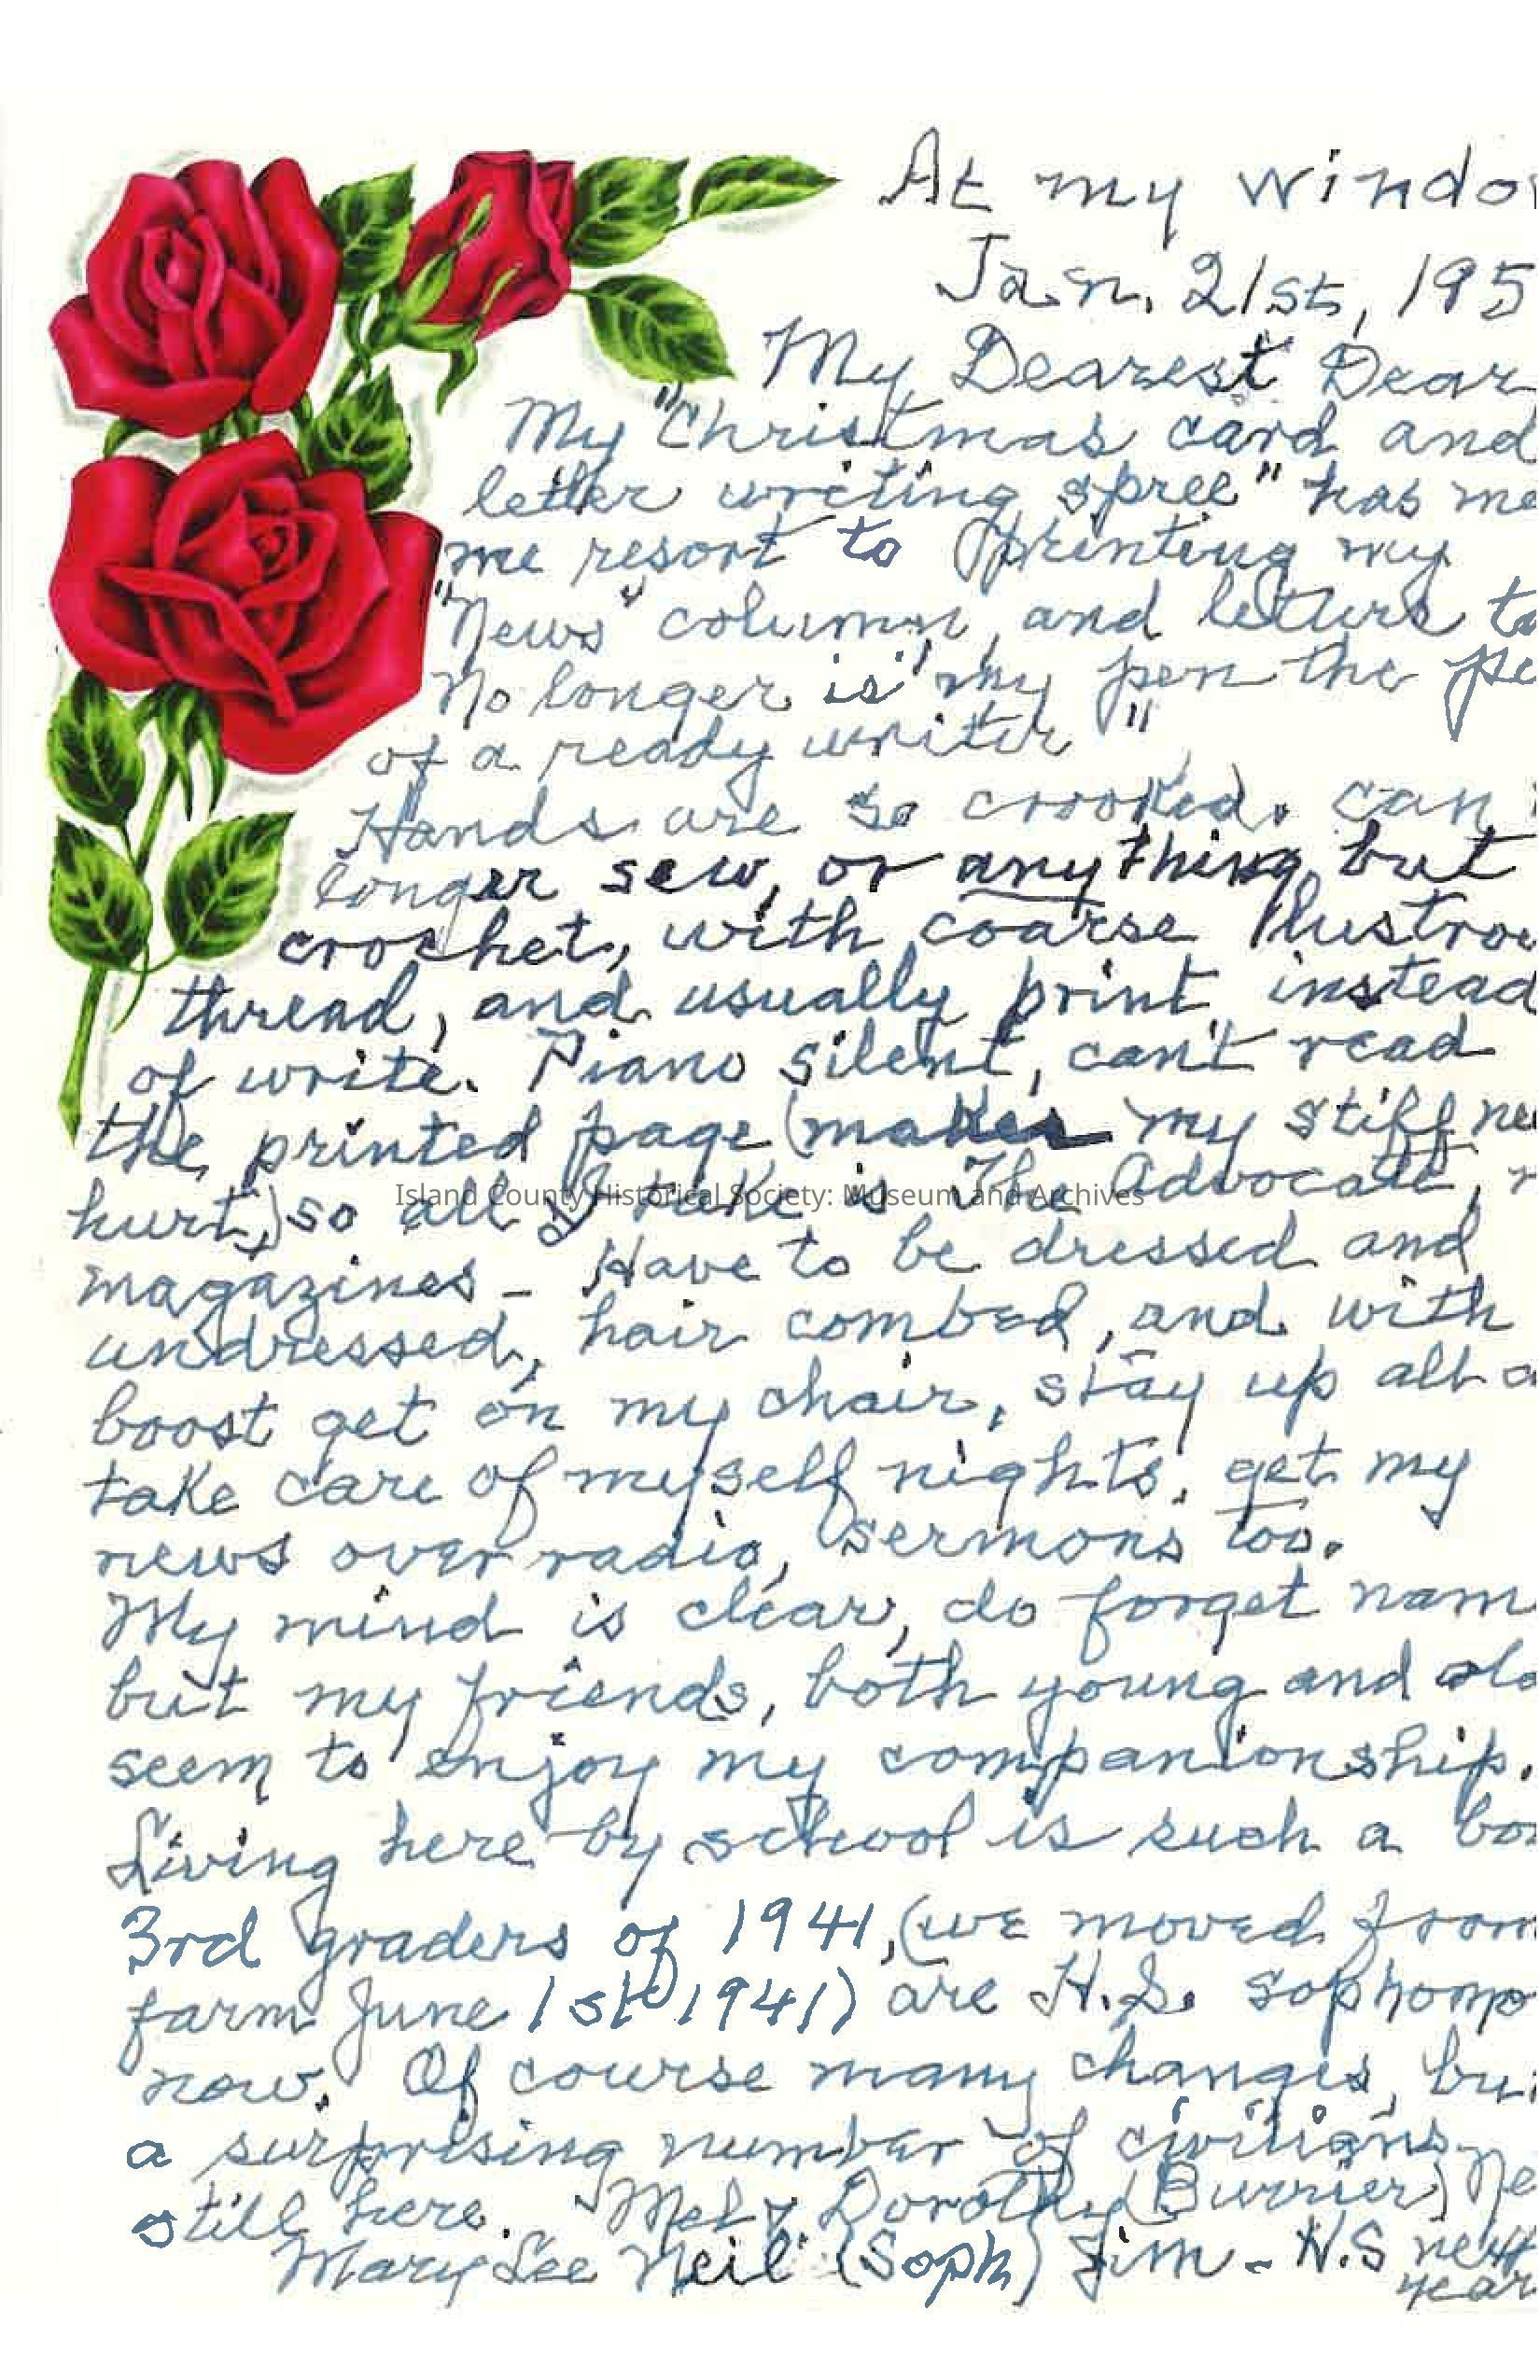 At my windo
Jan. 21st, 195
My Dearest Dear
My "Christmas card and
letter writing spree" has me
me resort to printing my
"News" column, and letters to
No longer is "my pen the pe
of a ready writer"
Hands are so crooked. can
longer sew, or anything but
crochet, with coarse lustrou
thread, and usually print instead
of write. Piano silent, can't read
the printed page (makes my stiff ne
hurt,) so all I take is The Advocate,
Island County Historical Society: Museum and Archives
magazines - Have to be dressed and
undressed, hair combed, and with
boost get on my chair, stay up all
take care of myself nights, get my
news over radio, sermons too.
My mind is clear, do forget nam
but my friends, both young and old
seem to enjoy my companionship.
Living here by school is such a bo
3rd graders of 1941, (we moved from
farm June 1st 1941) are H.S. sophomo
now. Of course many changes, bu
a surprising number of civilians
still here. Mel & Dorothy (Burrier) Ne
Mary Lee Neil (Soph) Jim - H.S next
year